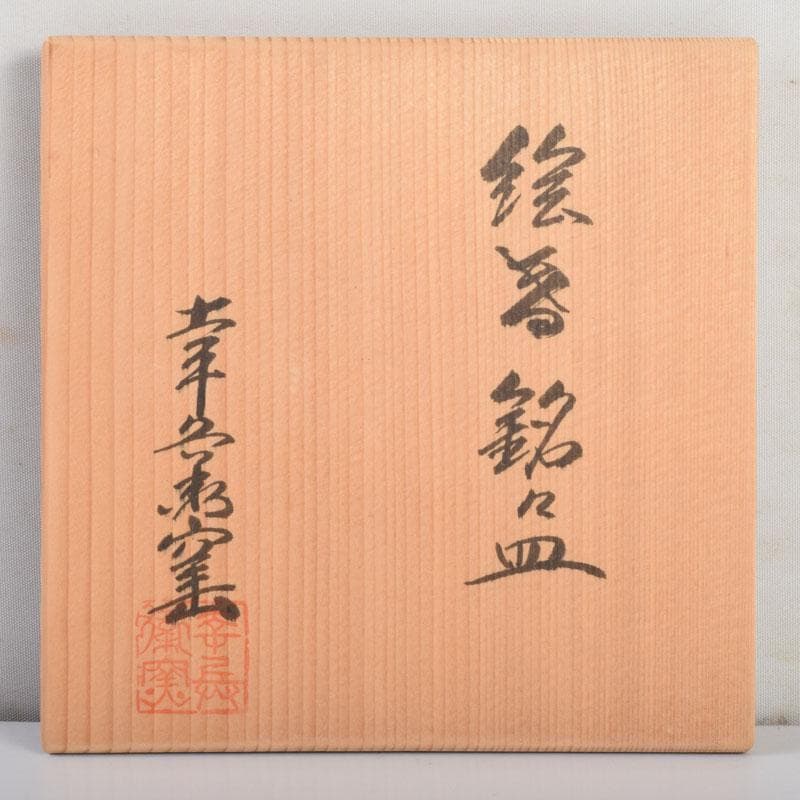 絵替銘々皿
幸兵衛窯
幸兵
衛窯